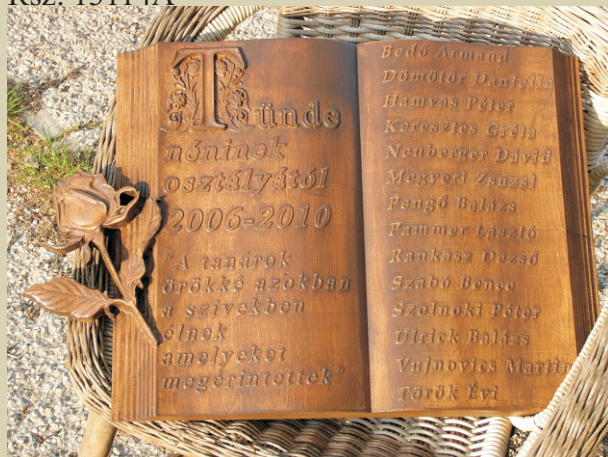 Tünde
nóninek
osztályától
2006-2010
"A tanárok
örökké azokban
a szivekben
élnek
amelyeket
megérintettek"
Bedő Armand
Dömötör Daniella
Hamvas Péter
Keresztes Gréta
Neuberger Dávid
Megyeri Zsuzsi
Pengő Balázs
Pammer László
Rankasz Dezső
Szabó Bence
Szolnoki Péter
Ulrick Balázs
Vujnovics Martin
Török Évi